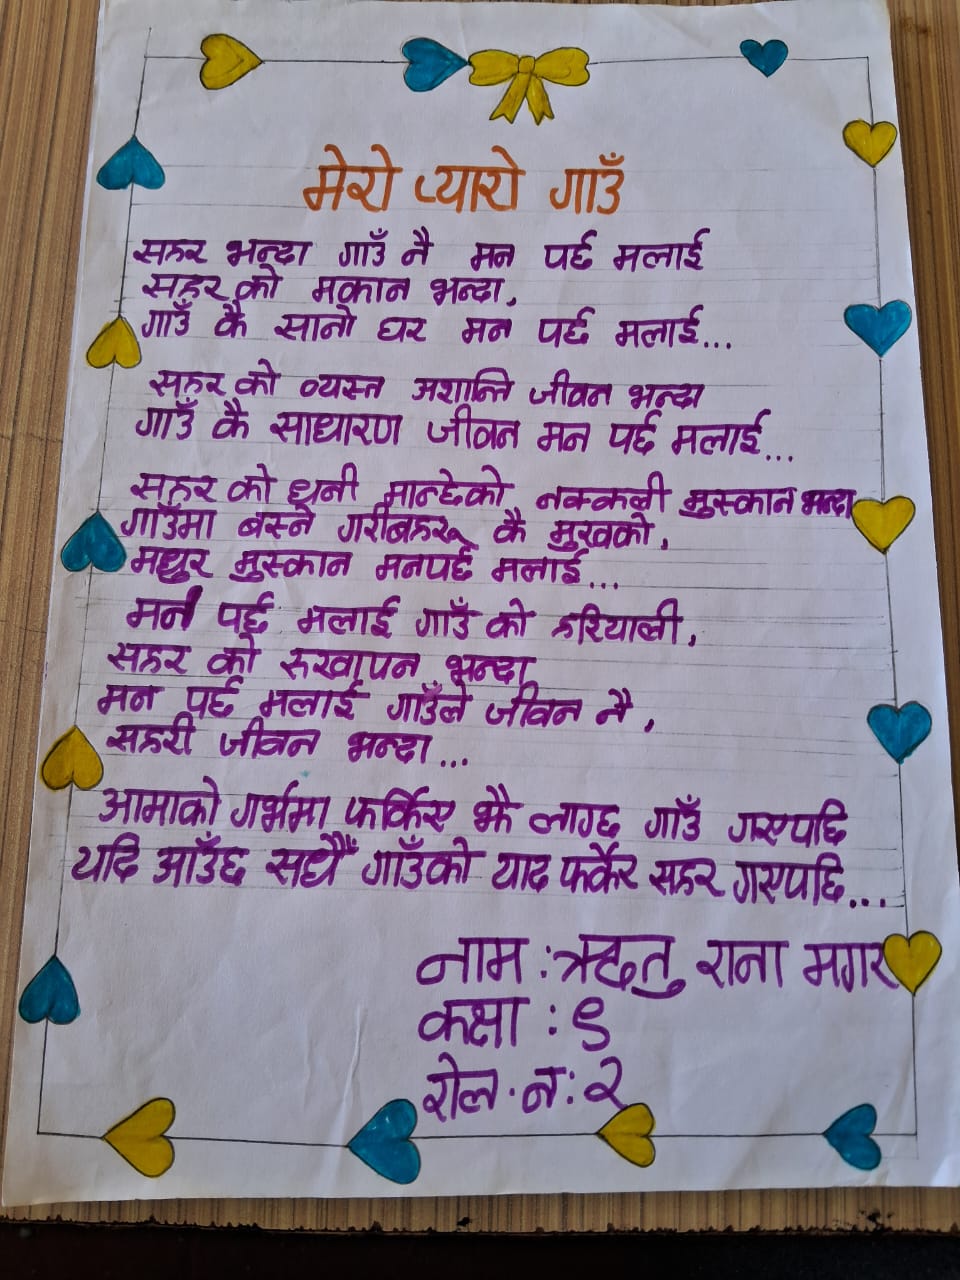 मेरो प्यारो गाउँ
सहर भन्दा गाउँ नै मन पर्छ मलाई
सहर को मकान भन्दा,
गाउँ कै सानो घर मन पर्छ मलाई...
सहर को व्यस्त अशान्ति जीवन भन्दा
गाउँ कै साधारण जीवन मन पर्छ मलाई...
सहर को धनी मान्छेको नक्कली मुस्कान भन्दा
गाउँमा बस्ने गरीबहरू कै मुखको,
मधुर मुस्कान मनपर्छ मलाई...
मन पर्छ मलाई गाउँ को हरियाली,
सहर को रुखापन भन्दा
मन पर्छ मलाई गाउँले जीवन नै,
सहरी जीवन भन्दा...
आमाको गर्भमा फर्किए झै लाग्छ गाउँ गएपछि
यदि आउँछ सधैँ गाउँको याद फर्केर सहर गएपछि...
नाम : ऋतु राना मगर
कक्षा : ९
रोल. न : २